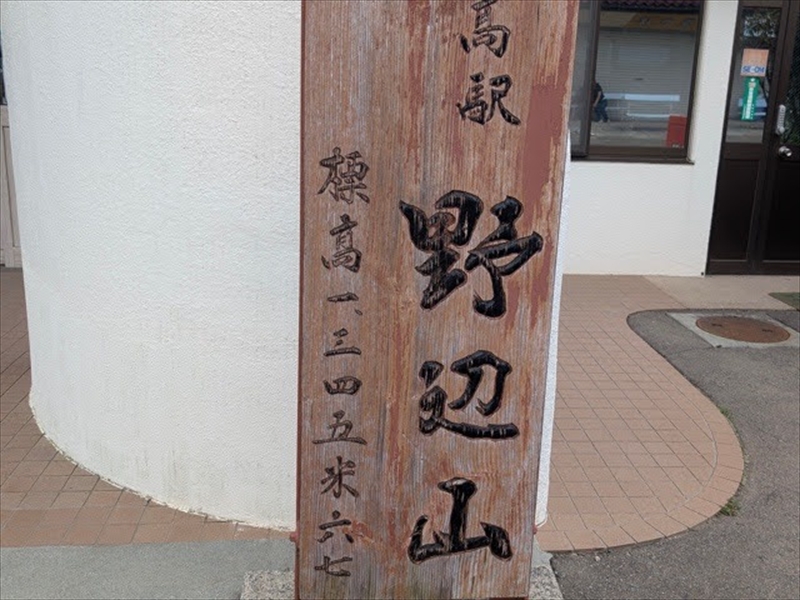 高駅 野辺山
標高一、三四五米六七